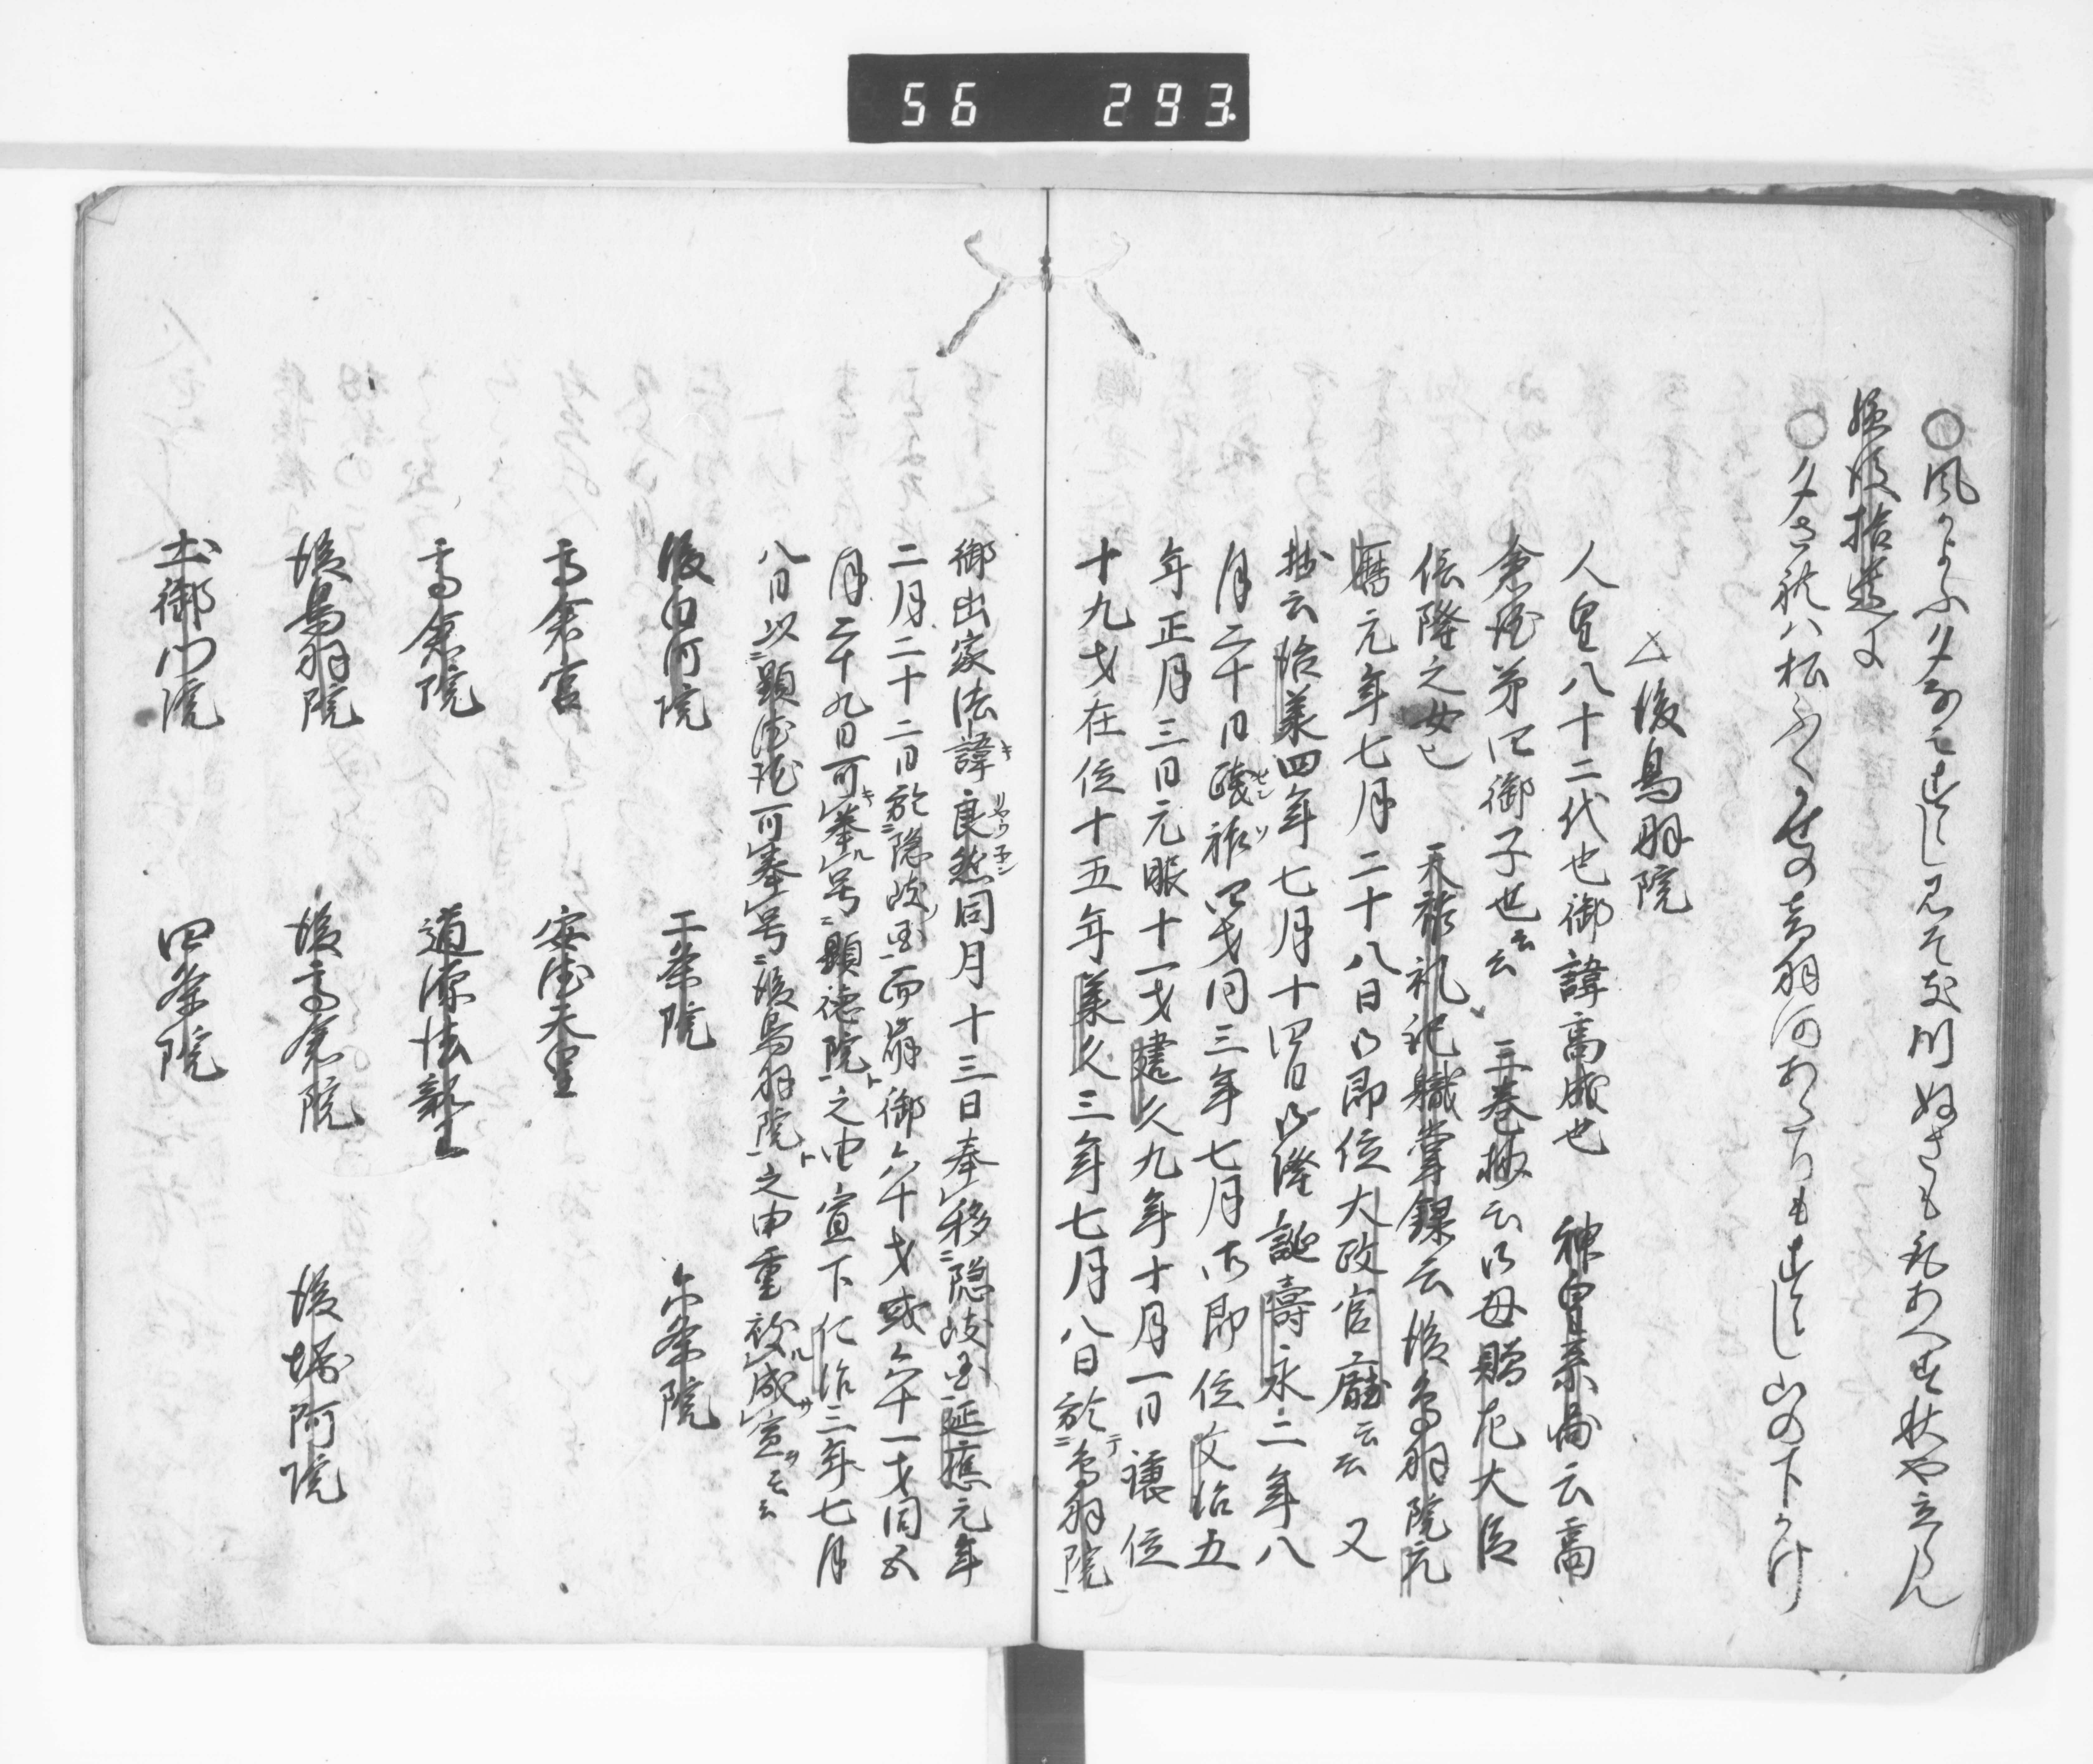 56 293
○風かよふ夕なみすゝし見そき川ぬさもとりあへす秋や立らん
続後拾遺に
○夕されハ松ふくかせの音羽河あたりもすゝし山の下かけ
△後鳥羽院
人皇八十二代也御諱高成也 神皇系図云高
倉院第四御子也云云 三巻抄云御母贈左大臣
信隆之女也 天祚礼祀職掌録云後鳥羽院元
暦元年七月二十八日御即位大政官廰云云又
抄云治美四年七月十四日御降誕壽永二年八
月二十日践祚四才同三年七月御即位文治五
年正月三日元服十一才建久九年十月一日譲位
十九才在位十五年美久三年七月八日於鳥羽院
御出家法諱良然同月十三日奉移隠岐国延應元年
二月二十二日於隠岐国而崩御六十才或六十一才同五
月二十九日可奉号顕徳院之由宣下仁治三年七月
八日以顕徳院可奉号後鳥羽院之由重被成宣云云
後白河院 二条院 六条院
高倉宮 安徳天皇
高倉院 道源法親王
後鳥羽院 後高倉院 後堀河院
土御門院 四条院